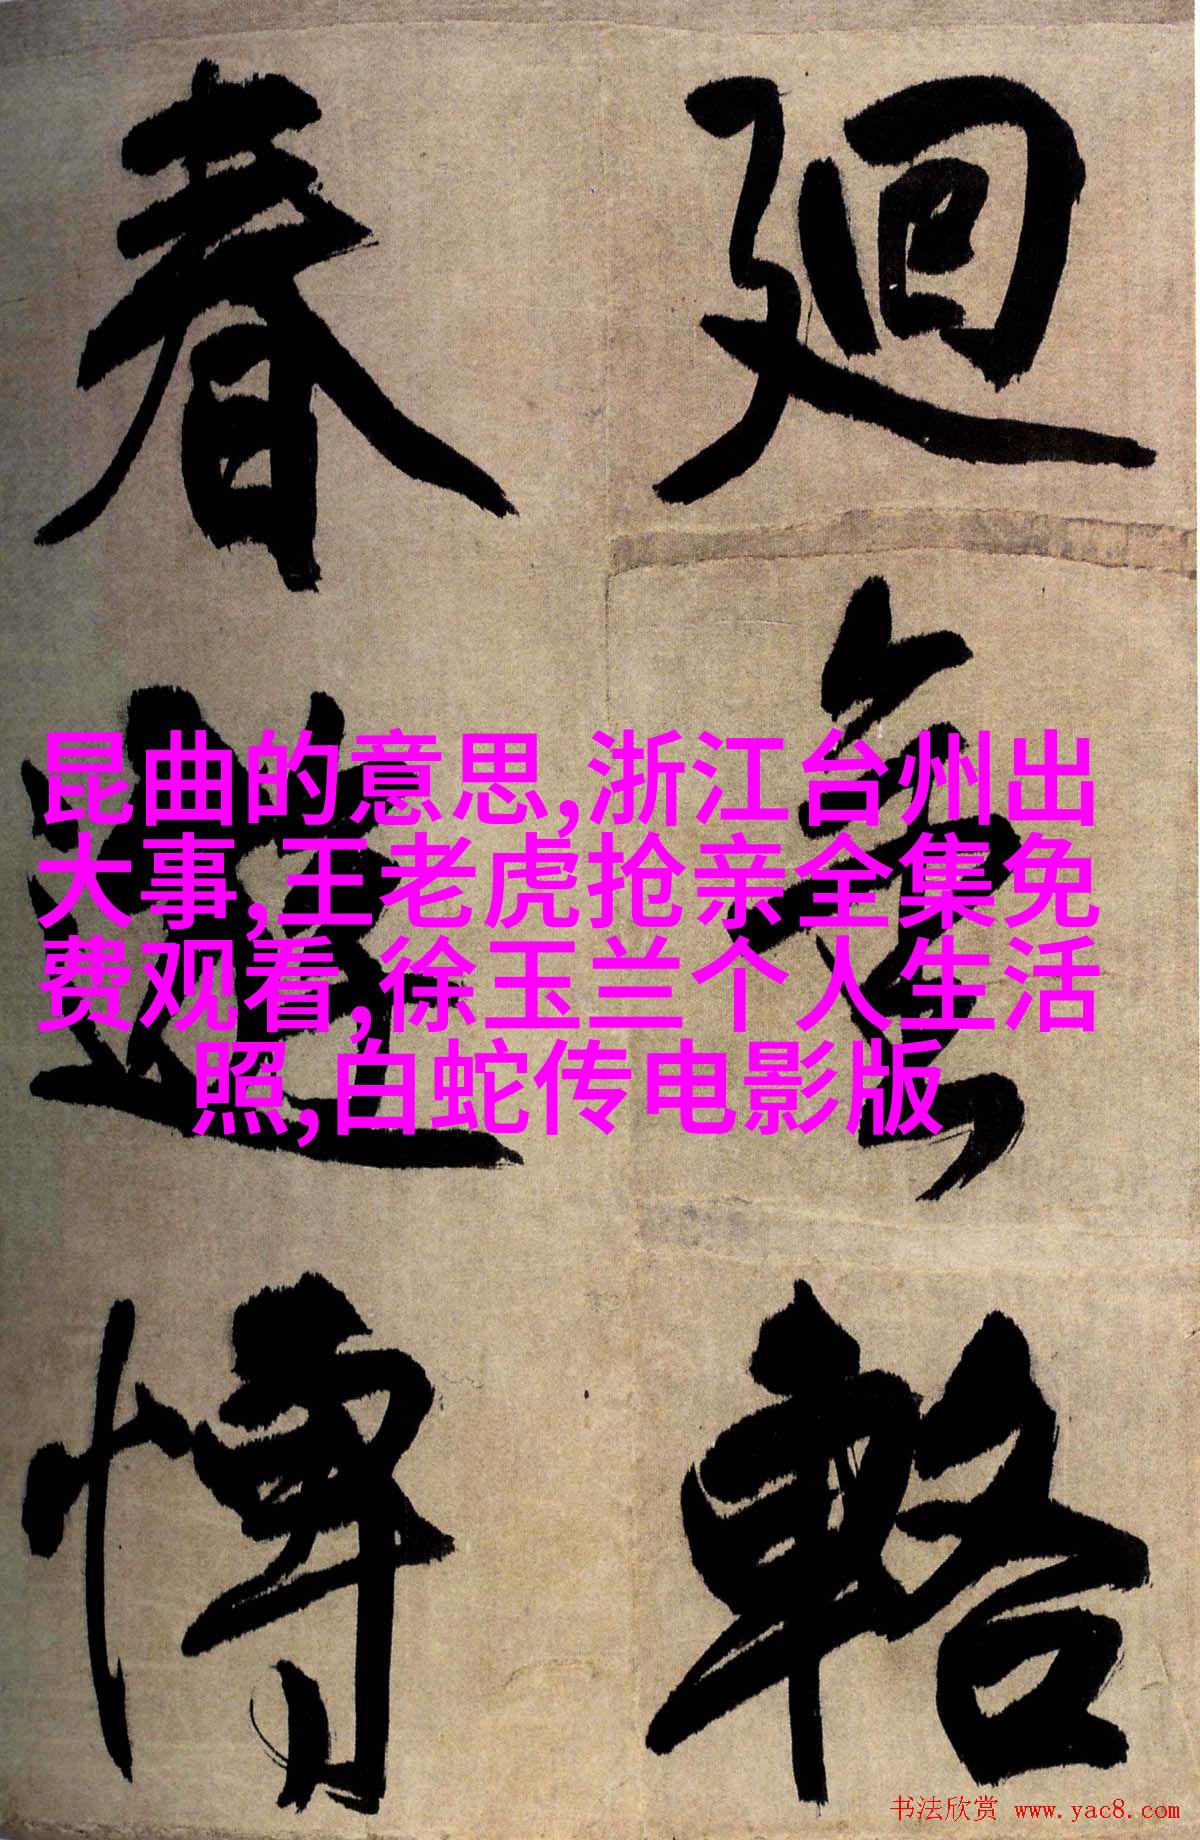 廻輅
春愽
昆曲的意思,浙江台州出
大事,王老虎抢亲全集免
费观看,徐玉兰个人生活
照,白蛇传电影版
书法欣赏 www.yac8.com